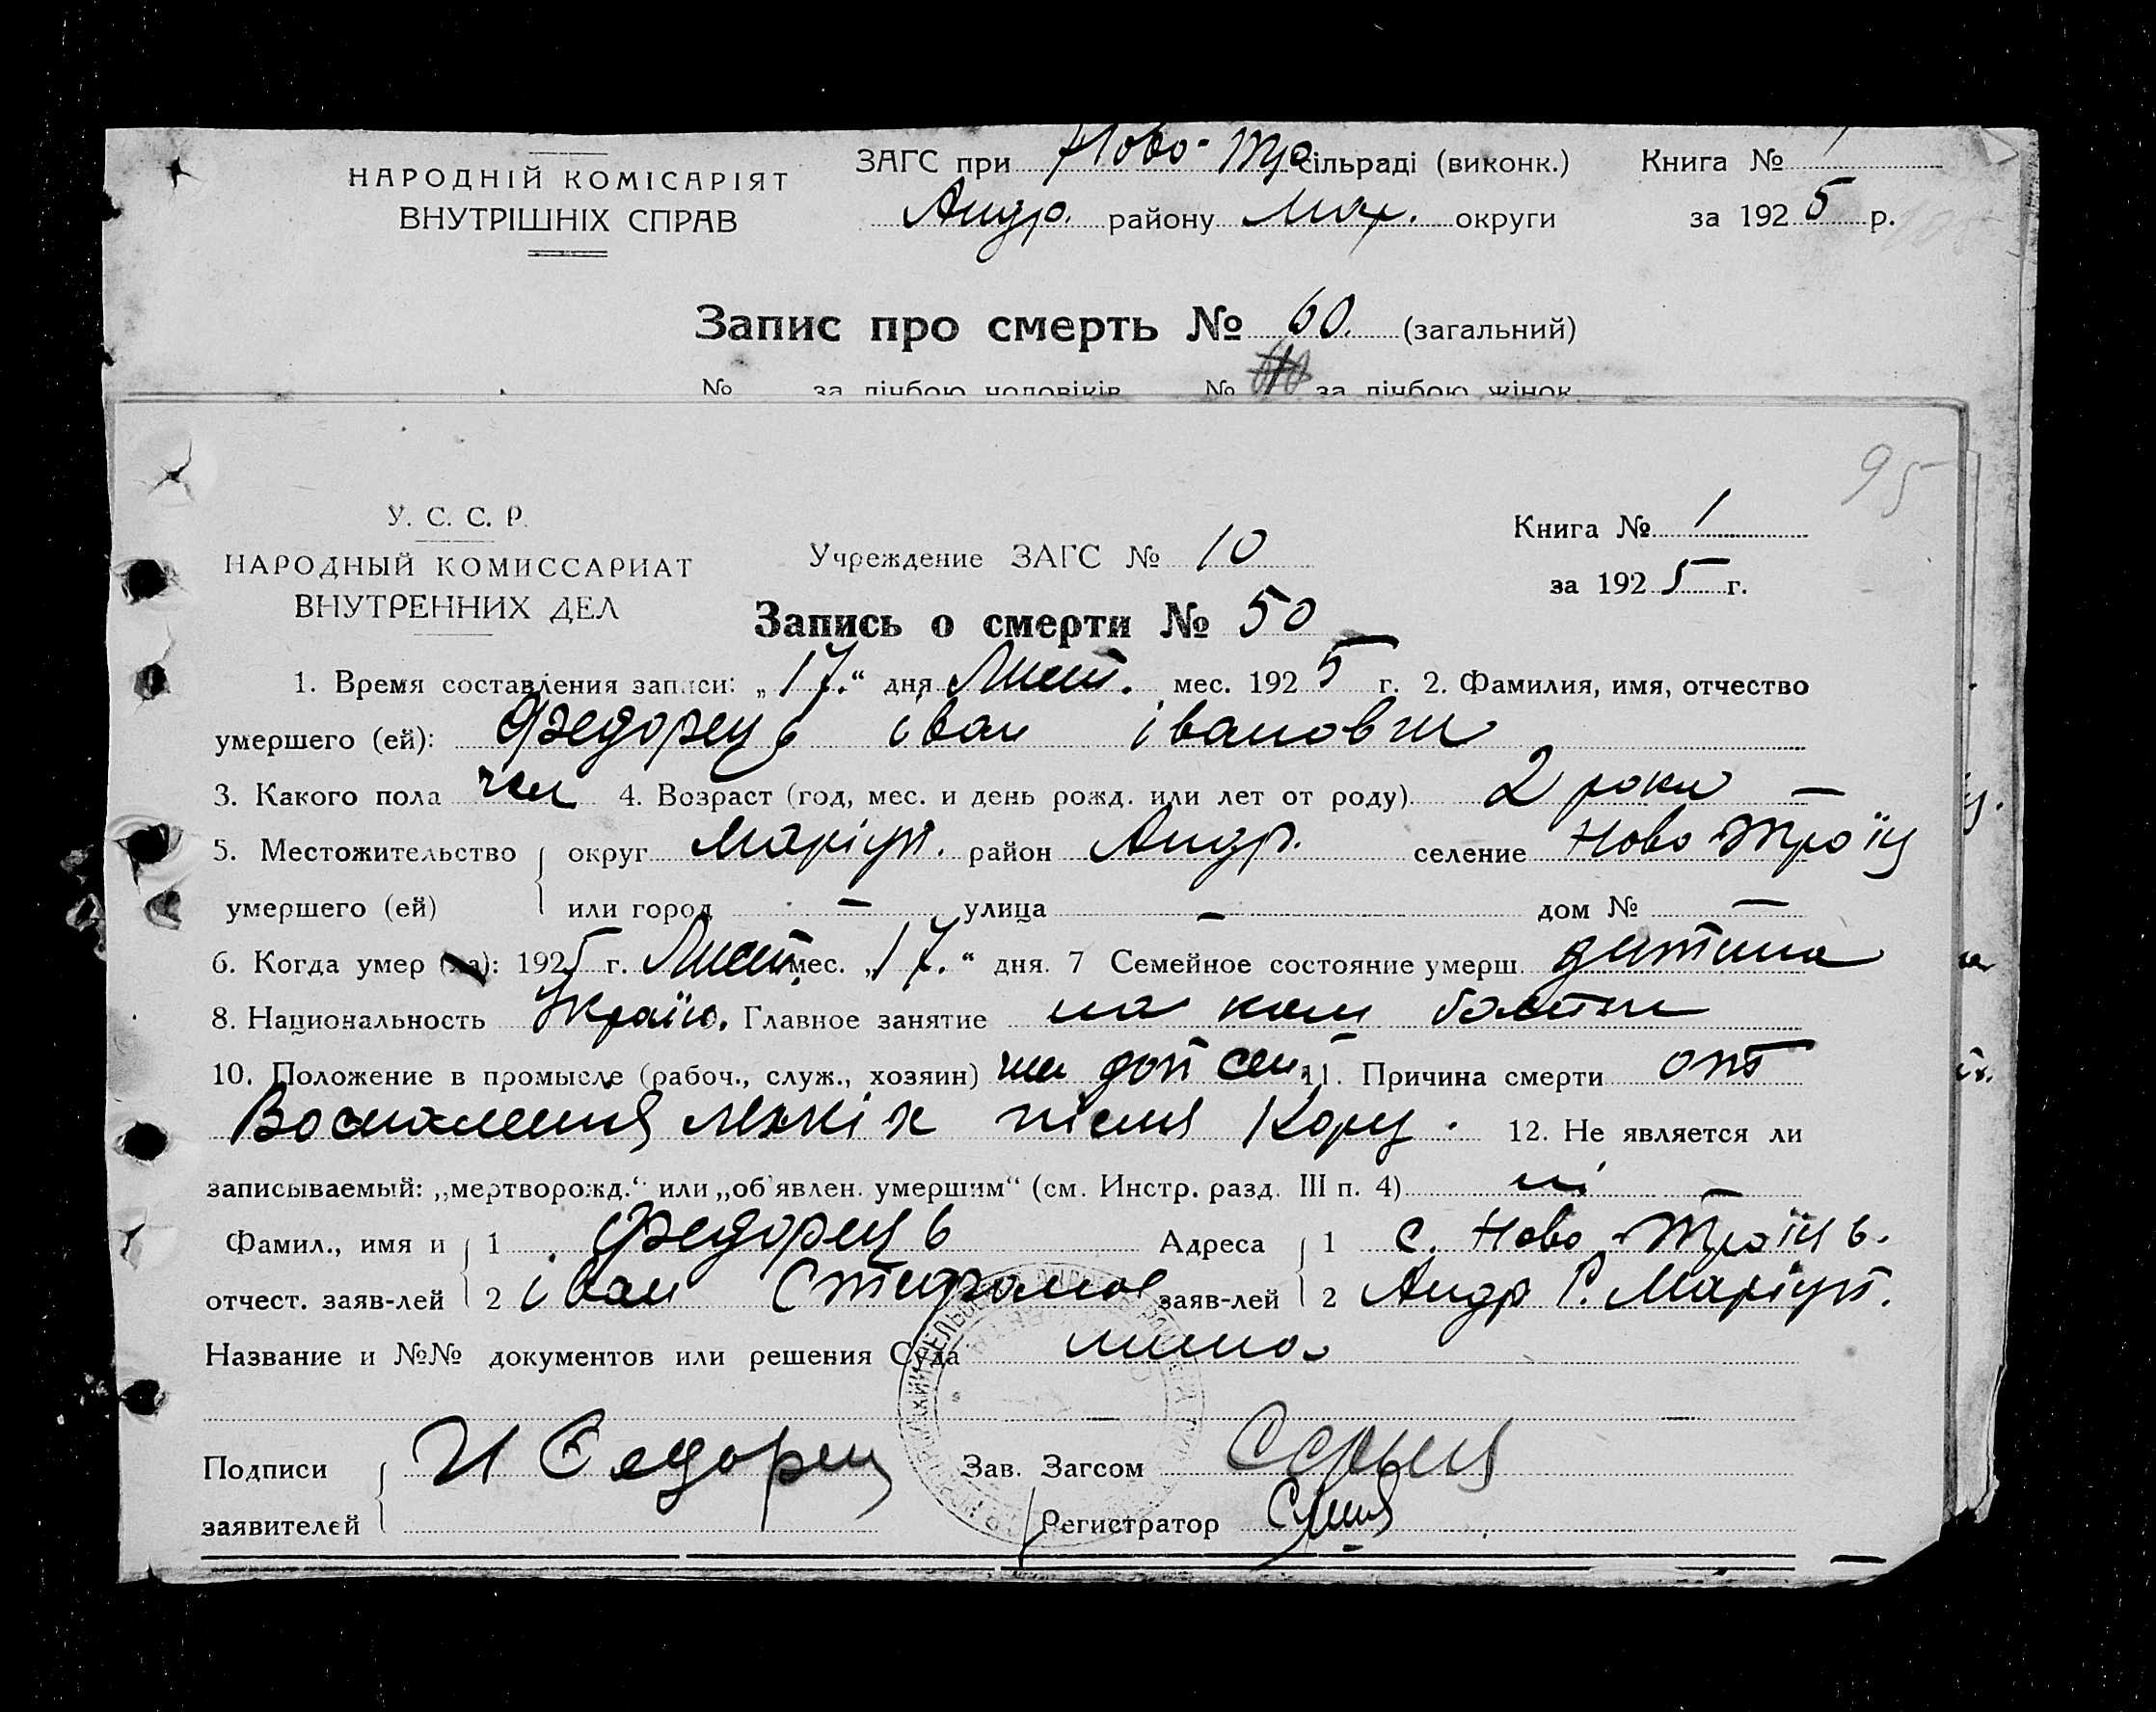 НАРОДНІЙ КОМІСАРІЯТ
ВНУТРІШНІХ СПРАВ
ЗАГС при Ново-Тро сільраді (виконк.)
Андр. району Мар. округи
Книга № 1
за 1925 р.
Запис про смерть № 60. (загальний)
№ за лічбою чоловіків № за лічбою жінок
95
У. С. С. Р.
НАРОДНЫЙ КОМИССАРИАТ
ВНУТРЕННИХ ДЕЛ
Учреждение ЗАГС № 10
Книга № 1
за 1925 г.
Запись о смерти № 50
1. Время составления записи: „17.“ дня Лист. мес. 1925 г. 2. Фамилия, имя, отчество
умершего (ей): Федорець іван іванович
3. Какого пола чол 4. Возраст (год, мес. и день рожд. или лет от роду) 2 роки —
5. Местожительство округ Маріуп. район Андр. селение Ново-Троїц
умершего (ей) или город — улица — дом № —
6. Когда умер (ла): 1925 г. Лист. мес. „17.“ дня. 7 Семейное состояние умерш. дитина
8. Национальность Україн. Главное занятие на
10. Положение в промысле (рабоч., служ., хозяин) 11. Причина смерти от
Воспалення після Кору. 12. Не является ли
записываемый: „мертворожд.“ или „об'явлен. умершим“ (см. Инстр. разд. III п. 4) ні —
Фамил., имя и 1 Федорець Адреса 1 с. Ново-Троїць.
отчест. заяв-лей 2 іван Стифанов заяв-лей 2 Андр Р. Маріуп.
Название и №№ документов или решения Суда нима
Подписи И Федорец Зав. Загсом
заявителей Регистратор